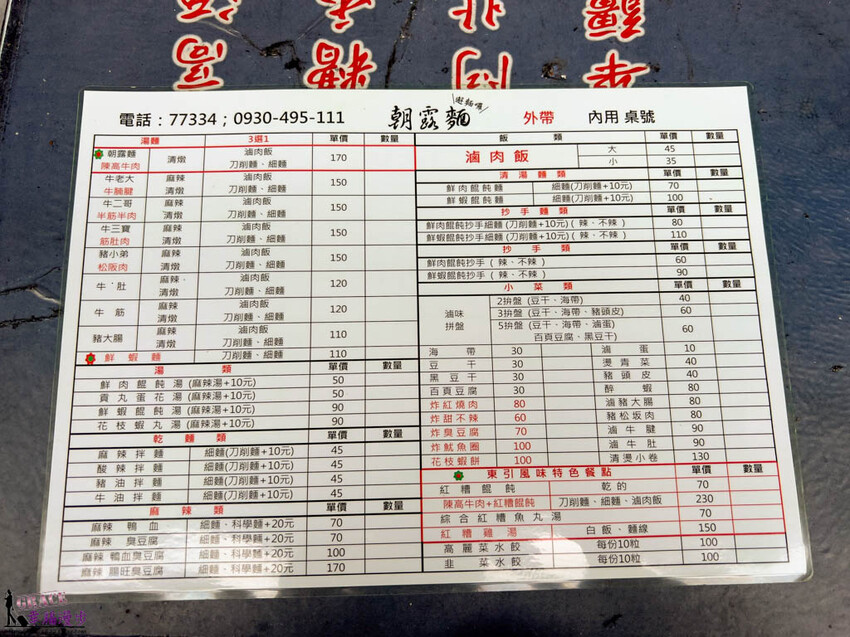 電話：77334；0930-495-111
朝露麵
外帶
內用 桌號
湯麵 3選1 單價 數量
朝露麵 陳高牛肉 清燉 滷肉飯 刀削麵、細麵 170
牛老大 牛腩腱 麻辣 清燉 滷肉飯 刀削麵、細麵 150
牛二哥 半筋半肉 麻辣 清燉 滷肉飯 刀削麵、細麵 150
牛三寶 筋肚肉 麻辣 清燉 滷肉飯 刀削麵、細麵 150
豬小弟 松阪肉 麻辣 清燉 滷肉飯 刀削麵、細麵 150
牛肚 麻辣 清燉 滷肉飯 刀削麵、細麵 120
牛筋 麻辣 清燉 滷肉飯 刀削麵、細麵 120
豬大腸 麻辣 清燉 滷肉飯 刀削麵、細麵 110
鮮蝦麵 刀削麵、細麵 110
湯類 單價 數量
鮮肉餛飩湯 (麻辣湯+10元) 50
貢丸蛋花湯 (麻辣湯+10元) 50
鮮蝦餛飩湯 (麻辣湯+10元) 90
花枝蝦丸湯 (麻辣湯+10元) 90
乾麵類 單價 數量
麻辣拌麵 細麵(刀削麵+10元) 45
酸辣拌麵 細麵(刀削麵+10元) 45
豬油拌麵 細麵(刀削麵+10元) 45
牛油拌麵 細麵(刀削麵+10元) 45
麻辣類 單價 數量
麻辣鴨血 細麵、科學麵+20元 70
麻辣臭豆腐 細麵、科學麵+20元 70
麻辣鴨血臭豆腐 細麵、科學麵+20元 100
麻辣腸旺臭豆腐 細麵、科學麵+20元 170
飯類 單價 數量
滷肉飯 大 45
小 35
清湯麵類 單價 數量
鮮肉餛飩麵 細麵(刀削麵+10元) 70
鮮蝦餛飩麵 細麵(刀削麵+10元) 100
抄手麵類 單價 數量
鮮肉餛飩抄手細麵 (刀削麵+10元) ( 辣、不辣 ) 80
鮮蝦餛飩抄手細麵 (刀削麵+10元) ( 辣、不辣 ) 110
抄手類 單價 數量
鮮肉餛飩抄手 ( 辣、不辣 ) 60
鮮蝦餛飩抄手 ( 辣、不辣 ) 90
小菜類 單價 數量
滷味拼盤 2拼盤 (豆干、海帶) 40
3拼盤 (豆干、海帶、豬頭皮) 60
5拼盤 (豆干、海帶、滷蛋 百頁豆腐、黑豆干) 60
海帶 30 滷蛋 10
豆干 30 燙青菜 40
黑豆干 30 豬頭皮 40
百頁豆腐 30 醉蝦 80
炸紅燒肉 80 滷豬大腸 80
炸甜不辣 60 豬松坂肉 80
炸臭豆腐 70 滷牛腱 90
炸魷魚圈 100 滷牛肚 90
花枝蝦餅 100 清燙小卷 130
東引風味特色餐點 單價 數量
紅糟餛飩 乾的 70
陳高牛肉+紅糟餛飩 刀削麵、細麵、滷肉飯 230
綜合紅糟魚丸湯 70
紅糟雞湯 白飯、麵線 150
高麗菜水餃 每份10粒 100
韭菜水餃 每份10粒 100